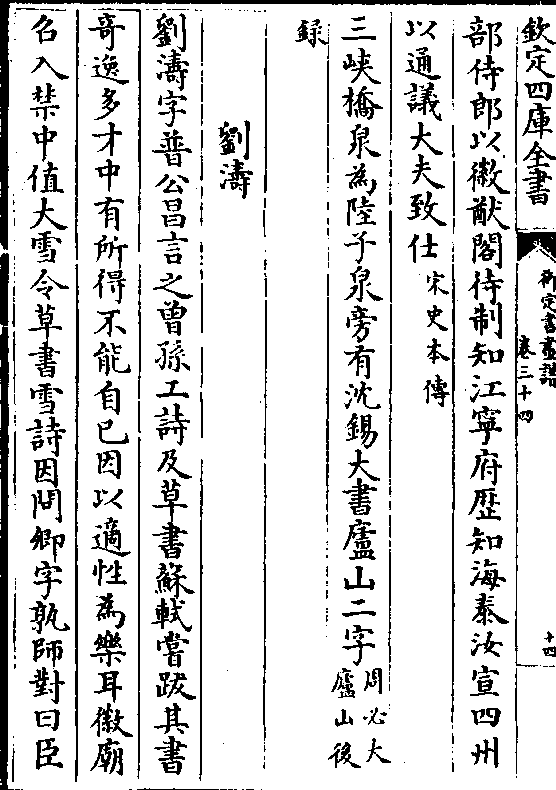 欽定四庫全書
御定書畫譜
卷三十四
十四
部侍郎以徽猷閣待制知江寧府歴知海泰汝宣四州
以通議大夫致仕宋史本傳
三峽橋泉為陸子泉旁有沈錫大書廬山二字周必大廬山後
録
劉濤
劉濤字普公昌言之曾孫工詩及草書蘇軾嘗跋其書
竒逸多才中有所得不能自已因以適性為樂耳徽廟
召入禁中值大雪令草書雪詩因問卿字孰師對曰臣